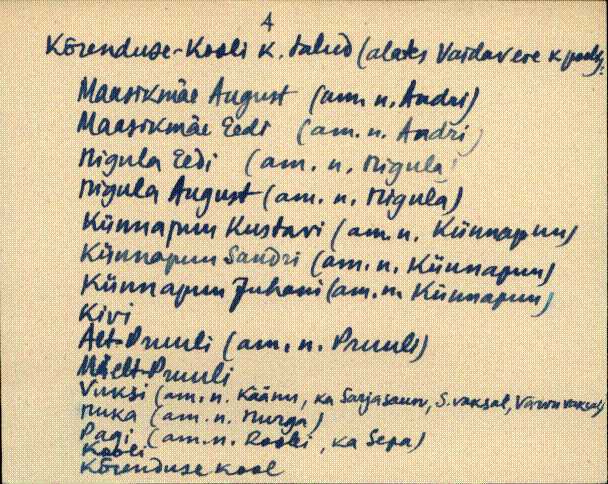 4
Kõrenduse-Kooli k. talud (alates Vaidavere k poolt).
Maasikmäe August (am. n. Andri)
Maasikmäe Eedi (am. n. Andri)
Nigula Eedi (am. n. Nigula)
Nigula August (am. n. Nigula)
Künnapuu Kustavi (am. n. Künnapuu)
Künnapuu Sandri (am. n. Künnapuu)
Künnapuu Juhani (am. n. Künnapuu)
Kivi
Alt-Pruuli (am. n. Pruuli)
Mäelt-Pruuli
Vuksi (am. n. Käänu, ka Sarjasaare, S. vaksal,
Nuka (am. n. Nurga)
Pagi (am. n. Roobi, ka Sepa)
Kooli
Kõrenduse kool